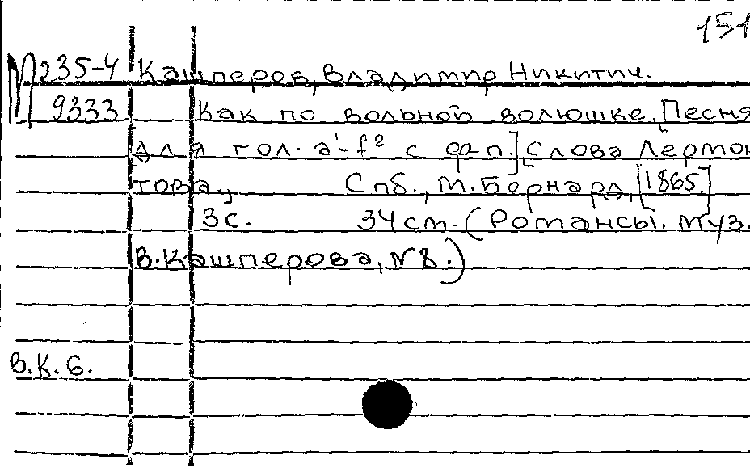 151
М 235-4 Кашперов, Владимир Никитич.
9333 Как по вольной волюшке. [Песня
для гол. a¹-f² с ф-п.] Слова Лермон
това. Спб., М. Бернард, [1865]
3с. 34 см. (Романсы. муз.
В. Кашперова, №8.)
В.К.6.